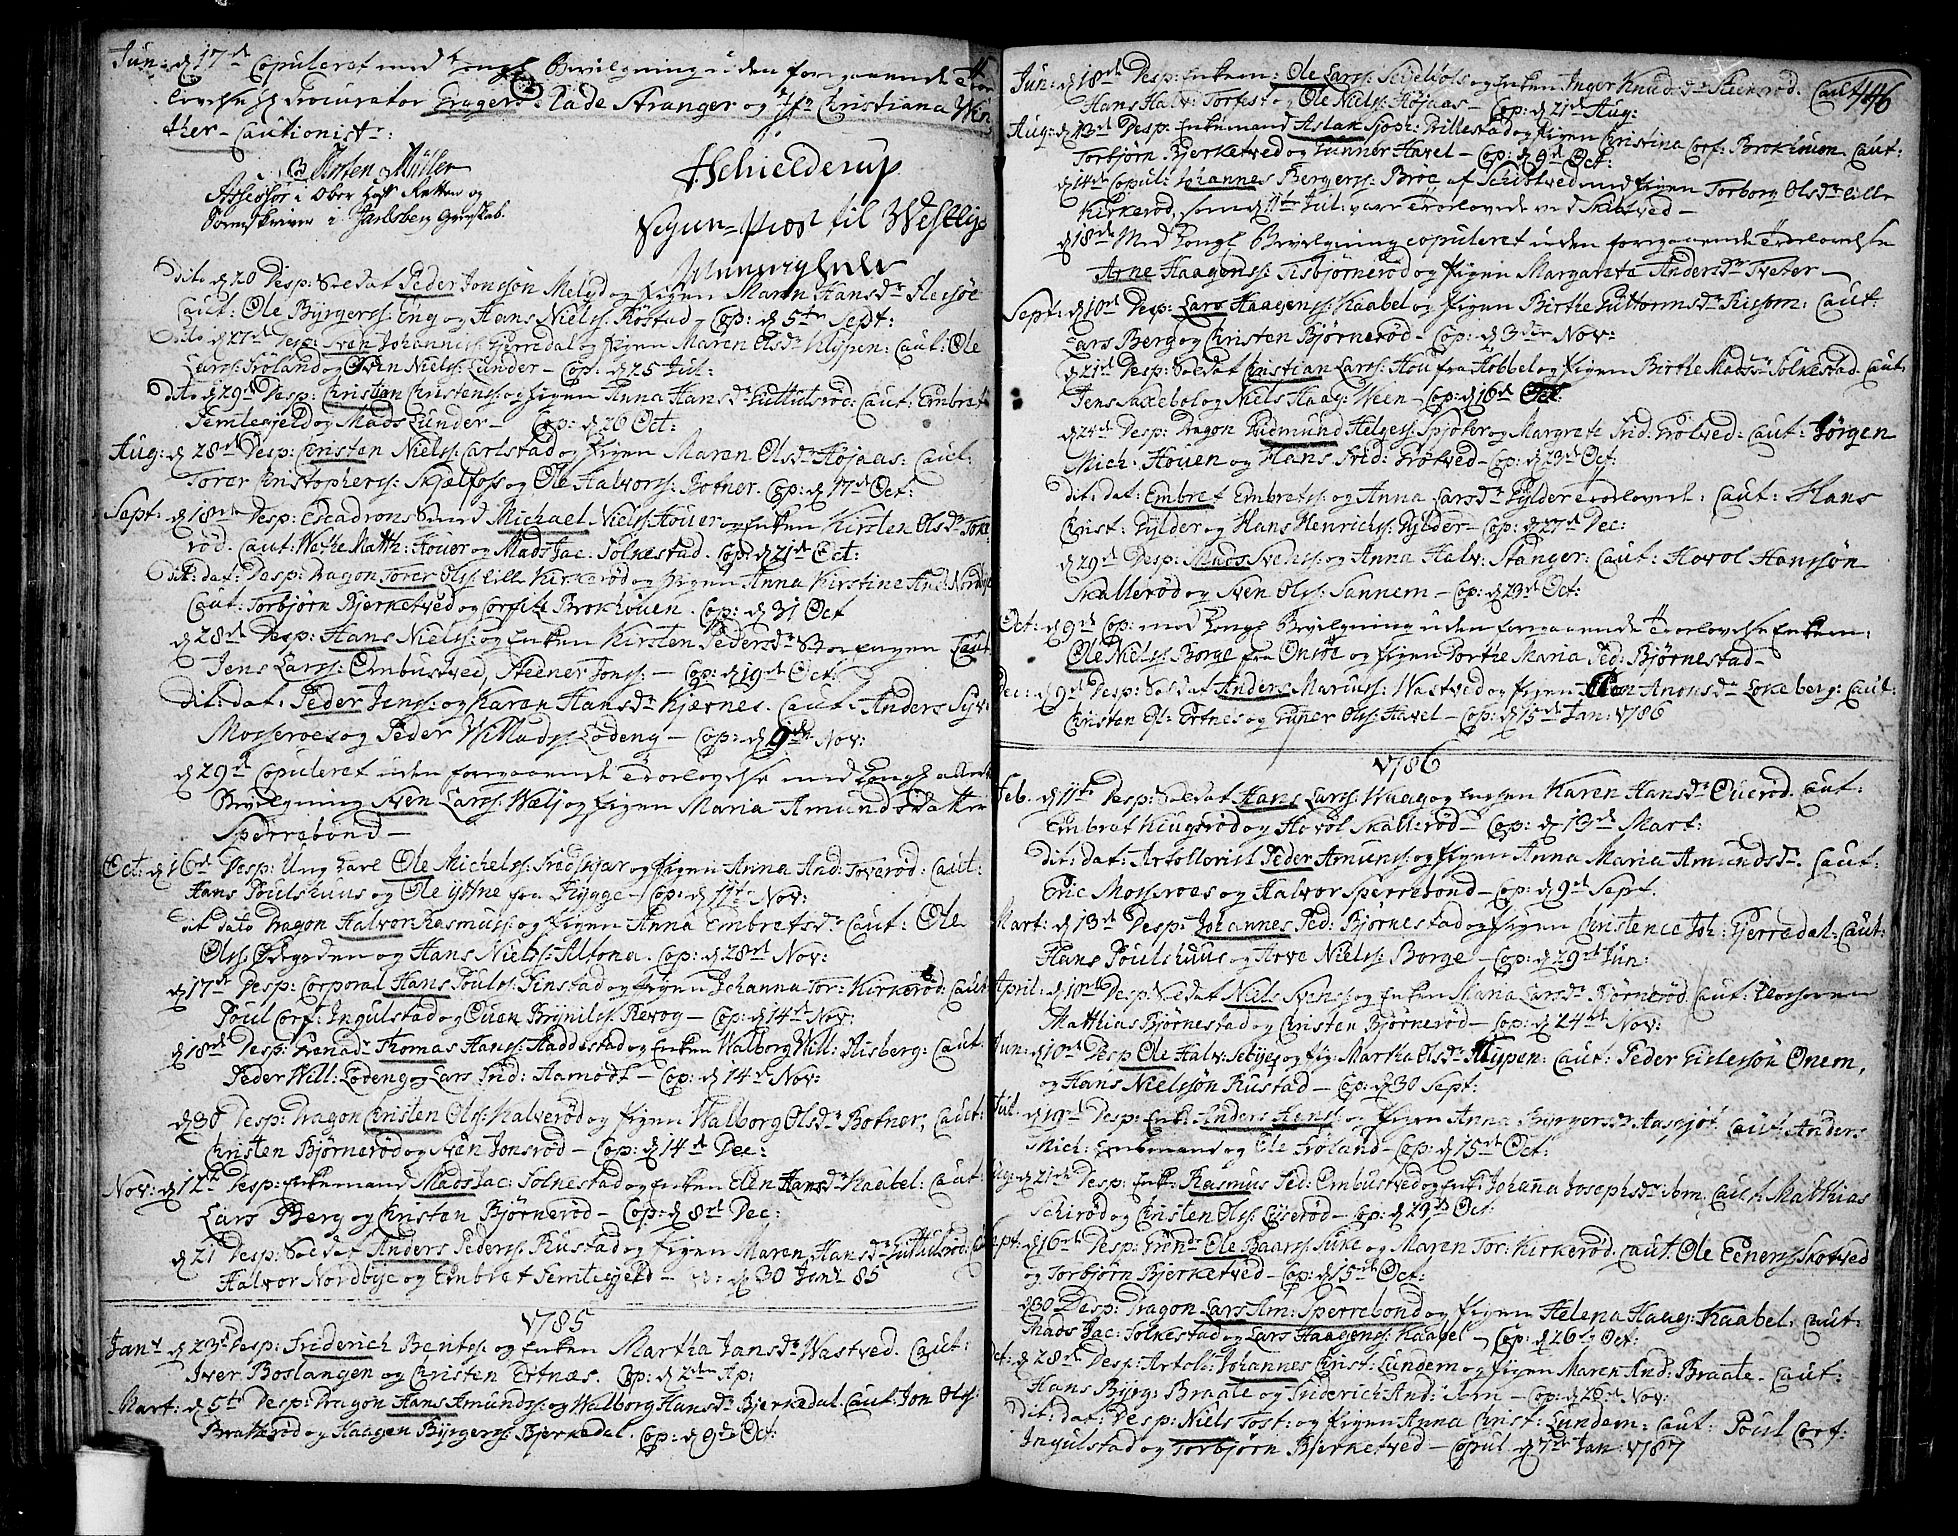 Jun: d 17de Copuleret med kongl Bevilgning uden foregaaende Troe
lovelse Hr Procurator Grager Tade Stranger og Christiana Win
ther - Cautionist:
Kirsten Müller
Assessor i Ober Hof Retten og
Sorenskriver i Jarlsberg Grevskab.
HSchielderup
Sogne-Præst til Westbye
Dito d 20 Desp: Soldat Peder Jonssøn Meled og Pigen Maren Hansdr
Caut: Ole Byrgerss: Eng og Hans Nielss: Rostad - Cop: d 5te Sept:
Dito d 27de Desp: Sven Johanness: Gjerredal og Pigen Maren Olsdr Klypen: Caut: Ole
Larss: Froland og Nielss: Lunder - Cop: d 25 Jul:
Dito d 29de Desp: Christian Christenss: og Pigen Anna Hansdr Guttulsrød: Caut: Embret
Femtegjeld og Mads Lunder - Cop: d 26 Oct:
Aug: d 28de Desp: Christen Nielss: Carlstad og Pigen Maren Olsdr Højaas: Caut:
Torer Christopherss: Skjelfoss og Ole Halvorss: Botner. Cop: d 17de Oct:
Sept: d 18de Desp: Escadrons Smed Michael Nielss: Houer og Enken Kirsten Olsdr Toke
rød. Caut: Matth: Houer og Mads Jac: Solnestad. Cop: d 21de Oct:
Dit: dat: Desp: Dragon Torer Olss: lille Kirkerød og Pigen Anna Kirstine And: Nordbye
Caut: Torbjørn Bjerketved og Corfitz Brokhouen. Cop: d 31 Oct
d 28de Desp: Hans Nielss: og Enken Kirsten Pedersdr Storengen Caut
Jens Larss: Embustved, Steener Jonss: - Cop: d 19de Oct:
Dit: dat: Peder Jenss: og Karen Hansdr Kjærnes. Caut: Anders Syv:
Mosseroes og Peder Willads: Lødeng - Cop: d 9de Nov:
d 29de Copuleret uden foregaaende Troelovelse med Kongl allern
Bevilgning Sven Larss: Wæll og Pigen Maria Amundsdatter
Sperrebond -
Oct: d 16de Desp: Ung Karl Ole Michelss: Fredskjær og Pigen Anna And: Toverød: Caut:
Hans Poulshuus og Ole ystne fra Rygge - Cop: d 11te Nov:
Dit Dato Dragon Halvor Rasmuss: og Pigen Anna Embretsdr Caut: Ole
Olss: Ødegaden og Hans Nielss: Altona. Cop: d 28de Nov:
d 17de Desp: Corporal Hans Poulss: Finstad og Pigen Johanna Tor: Kirkerød: Caut:
Poul Corf: Ingulstad og Ouen Brynilss: Revog - Cop: d 14de Nov:
d 18de Desp: Grenadr Thomas Hanss: Haddestad og Enken Walborg Will: Aisberg: Caut:
Peder Will: Lødeng og Lars Fred: Aamodt - Cop: d 14de Nov:
d 30 Desp: Dragon Christen Olss: Kalverød og Pigen Walborg Olsdr Botner; Caut:
Christen Bjørnerød og Sven Jonsrød - Cop: d 14de Dec:
Nov: d 12te Desp: Enkemand Mads Jac: Solnestad og Enken Ellen Hansdr Kaabel: Caut:
Lars Berg og Christen Bjørnerød - Cop: d 8de Dec:
d 21 Desp: Soldat Anders Pederss: Rustad og Pigen Maren Hansdr Guttulsrød:
Halvor Nordbye og Embret Femtegjeld - d 30 Jan: 85
1785
Jan: d 23de Desp: Friderich Bentss: og Enken Martha Jansdr Wastved. Caut:
Iver Boslangen og Christen Ertnæs. Cop: d 2den Ap:
Mart: d 5te Desp: Dragon Hans Amundss: og Walborg Hansdr Bjerkedal Caut: Jon Olss:
Bratterød og Haagen Byrgerss: Bjerkedal. Cop: d 9de Oct:
146
Jun: d 18de Desp: Enkem: Ole Larss: og Enken Inger Knudsdr Steensrød. Caut:
Hans Halv: Torfest og Ole Nielss: Højaas - Cop: d 21de Aug:
Aug: d 13de Desp: Enkemand Aslak Soph: Brillestad og Pigen Christina Corf: Brokhouen Caut:
Torbjørn Bjerketved og Gunner Havel - Cop: d 9de Oct:
d 14de Copul: Johannes Bergerss: Broe af Schibtved med Pigen Torborg Olsdr lille
Kirkerød, som d 11te Jul: vare Troelovede ved Skibtved -
d 18de Med Kongl Bevilgning copuleret uden foregaaende Troelovelse
Arne Haagenss: Tisbjørnerød og Pigen Margareta Andersdr Tveter -
Sept: d 10de Desp: Lars Haagenss: Kaabel og Pigen Birthe Guttormsdr Risom: Caut:
Lars Berg og Christen Bjørnerød - Cop: d 3die Nov:
d 21de Desp: Soldat Christian Larss: Hou fra Hobbel og Pigen Birthe Madsdr Solnestad. Caut:
Jens Saxebol og Niels Haag: Ween - Cop: d 16de Oct:
d 24de Desp: Dragon Gudmund Helgess: Spjoter og Margrete Fred: Grøtved: Caut: Jørgen
Mich: Houen og Hans Fred: Grøtved - Cop: d 23de Oct:
Dit: dat: Embret Embretss: og Anna Larsdr Gylder Troelovede: Caut: Hans
Christ: Gylder og Hans Henrichss: Gylder - Cop: d 27de Dec:
d 29de Desp: Mads Svenss: og Anna Halv: Stanger: Caut: Hovol Hanssøn
Skallerød og Sven Olss: Sannem - Cop: d 23de Oct:
Oct: d 9de Cop: med Kongl Bevilgning uden foregaaende Troelovelse Enkem:
Ole Nielss: Borge fra Onsøe og Pigen Dorthe Maria Ped: Bjørnestad -
Dec: d 9de Desp: Soldat Anders Mariuss: Wastved og Pigen Anonsdr Lokeberg: Caut:
Christen Ol: Ertnes og Guner Olss: Havel - Cop: d 15de Jan: 1786
1786
Feb. d 11te Desp: Soldat Hans Larss: Waag og Enken Karen Hansdr Ouerød. Caut:
Embret Klugsrød og Hovol Skallerød - Cop: d 13de Mart:
Dit: dat: Artollerist Peder Amunss: og Pigen Anna Maria Amundsdr. Caut:
Eric Mosseroes og Halvor Sperrebond - Cop: d 9de Sept.
Mart: d 13de Desp: Johannes Ped: Bjørnestad og Pigen Christence Joh: Gjerredal: Caut:
Hans Poulshuus og Arve Nielss: Borge - Cop: d 29de Jun:
April: d 10de Desp: Soldat Niels Svenss: og Enken Maria Larsdr Bjørnerød Caut: Klocheren
Matthias Bjørnestad og Christen Bjørnerød - Cop: d 24de Nov:
Jun: d 10de Desp Ole Halv: Sebye og Pig: Martha Olsdr Klypen: Caut: Peder Gullessøn Onem,
og Hans Nielssøn Rustad - Cop: d 30 Sept:
Jul. d 19de Desp: Enk: Anders Jenss: og Pigen Anna Byrgersdr Aasgjøt. Caut: Anders
Mich: Embemand og Ole Froland - Cop: d 15de Oct:
Aug: d 21de Desp: Enk: Rasmus Ped: Embustved og Enk: Johana Josephsdr ibm. Caut: Matthias
Schirød og Christen Olss: Eyserød - Cop: d 29de Oct:
Sept: d 16de Desp: Grendr Ole Baarss: Suke og Maren Tor: Kirkerød. Caut: Ole Eenerss: Skotved
og Torbjørn Bjerketved - Cop: d 15de Oct:
d 30 Desp: Dragon Lars Am: Sperrebond og Pigen Helena Haag: Kaabel. Caut:
Mads Jac: Solnestad og Lars Haagenss: Kaabel - Cop: d 26de Oct:
Oct: d 28de Desp: Artoll: Johannes Christ: Lundem og Pigen Maren And: Braate - Caut:
Hans Byrg: Braate og Friderich And: ibm - Cop: d 28de Nov:
Dit: dat: Desp: Niels Tost: og Pigen Anna Christ: Lundem: Caut: Poul Corf:
Ingulstad og Torbjørn Bjerketved - Copul. d 7de Jan: 1787